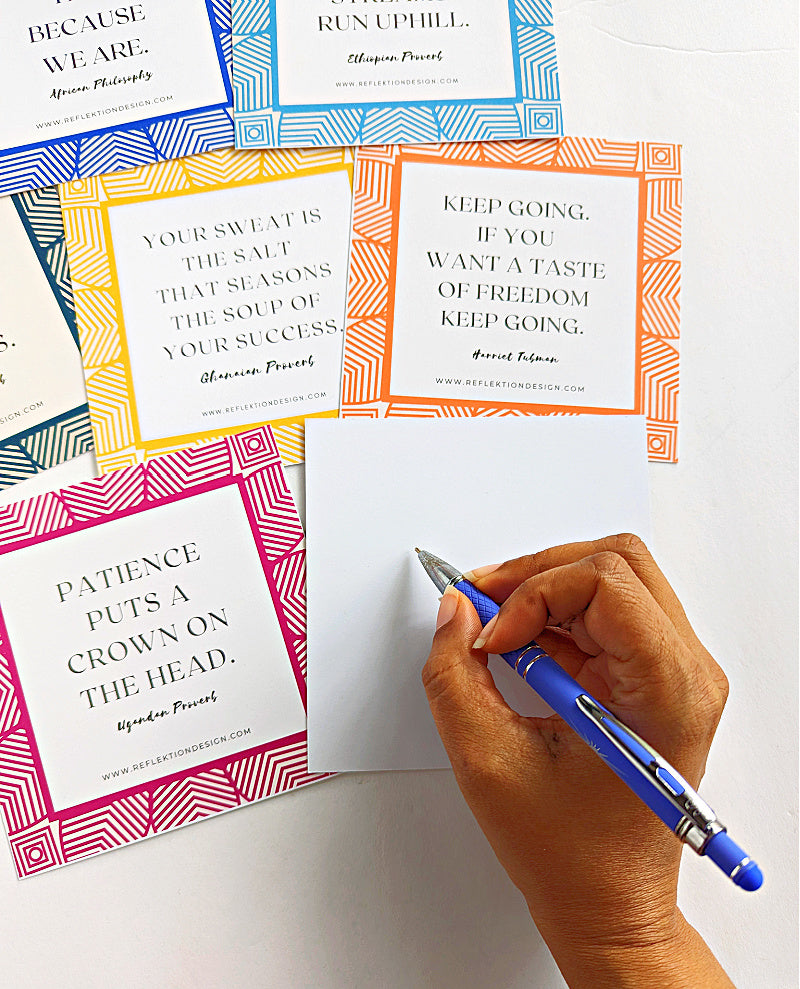 BECAUSE
WE ARE.
African Philosophy
WWW.REFLEKTIONDESIGN.COM
RUN UPHILL.
Ethiopian Proverb
WWW.REFLEKTIONDESIGN.COM
YOUR SWEAT IS
THE SALT
THAT SEASONS
THE SOUP OF
YOUR SUCCESS.
Ghanaian Proverb
WWW.REFLEKTIONDESIGN.COM
KEEP GOING.
IF YOU
WANT A TASTE
OF FREEDOM
KEEP GOING.
Harriet Tubman
WWW.REFLEKTIONDESIGN.COM
PATIENCE
PUTS A
CROWN ON
THE HEAD.
Ugandan Proverb
WWW.REFLEKTIONDESIGN.COM